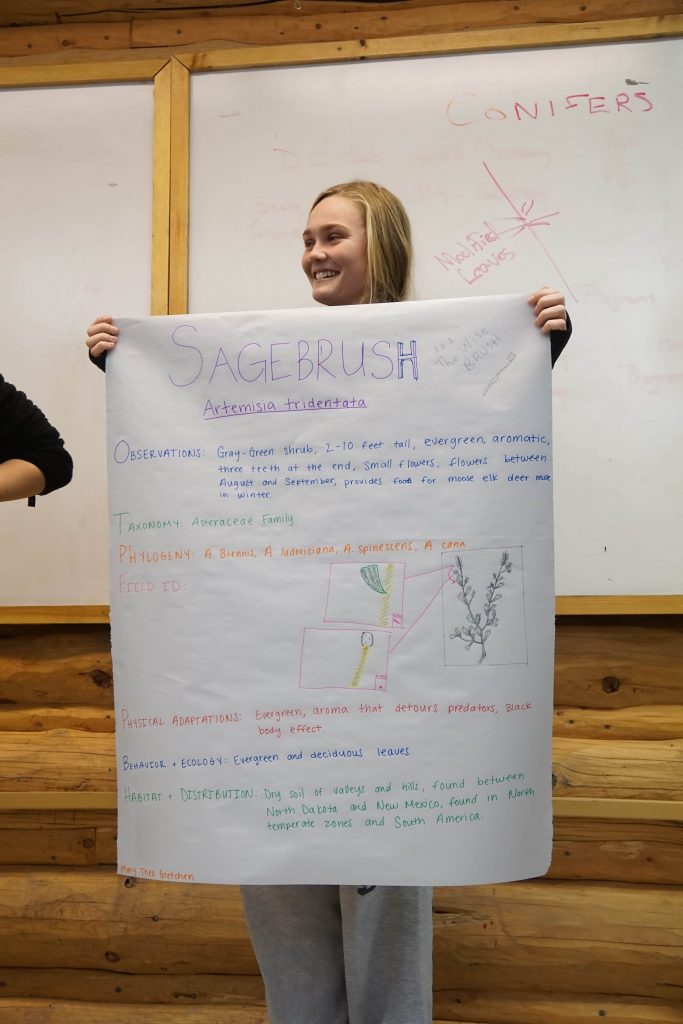 CONIFERS
Modified
Leaves
SAGEBRUSH
A.K.A
THE WISE
BRUSH
Artemisia tridentata
OBSERVATIONS: Gray-Green shrub, 2-10 feet tall, evergreen, aromatic,
three teeth at the end, small flowers, flowers between
August and September, provides food for moose elk deer mule
in winter.
TAXONOMY: Asteraceae Family
PHYLOGENY: A. Biennis, A ludoviciana, A spinescens, A cana
FIELD ID:
PHYSICAL ADAPTATIONS: Evergreen, aroma that detours predators, Black
body effect.
BEHAVIOR + ECOLOGY: Evergreen and deciduous leaves
HABITAT + DISTRIBUTION: Dry soil of valleys and hills, found between
North Dakota and New Mexico, found in North
temperate zones and South America.
Mary Theo Gretchen